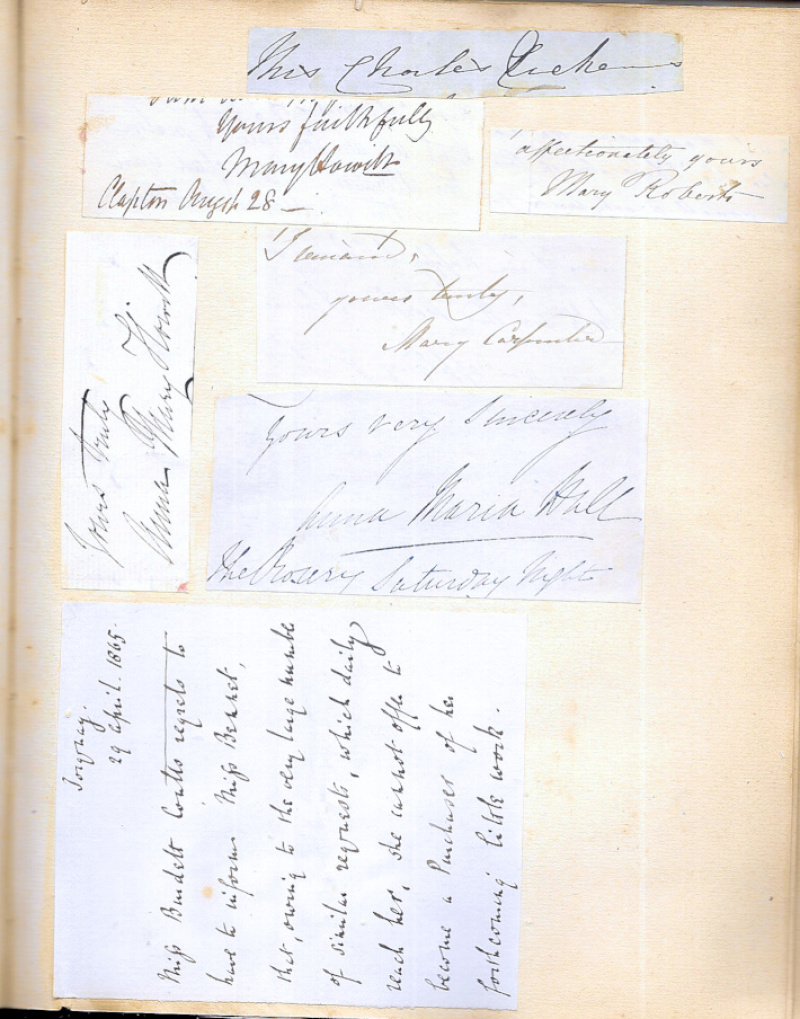 Mrs Charles Dickens
Yours faithfully
Mary Howitt
Clapton Augst 28 —
affectionately yours
Mary Roberts
I remain,
yours truly,
Mary Carpenter
Yours truly
Anna Mary Howitt
Yours very Sincerely
Anna Maria Hall
The Rosery Saturday Night
Torquay.
29 April. 1865.
Miss Burdett Coutts regrets to
have to inform Miss Bennet,
that, owing to the very large number
of similar requests, which daily
reach her, she cannot offer to
become a Purchaser of her
forthcoming little work.